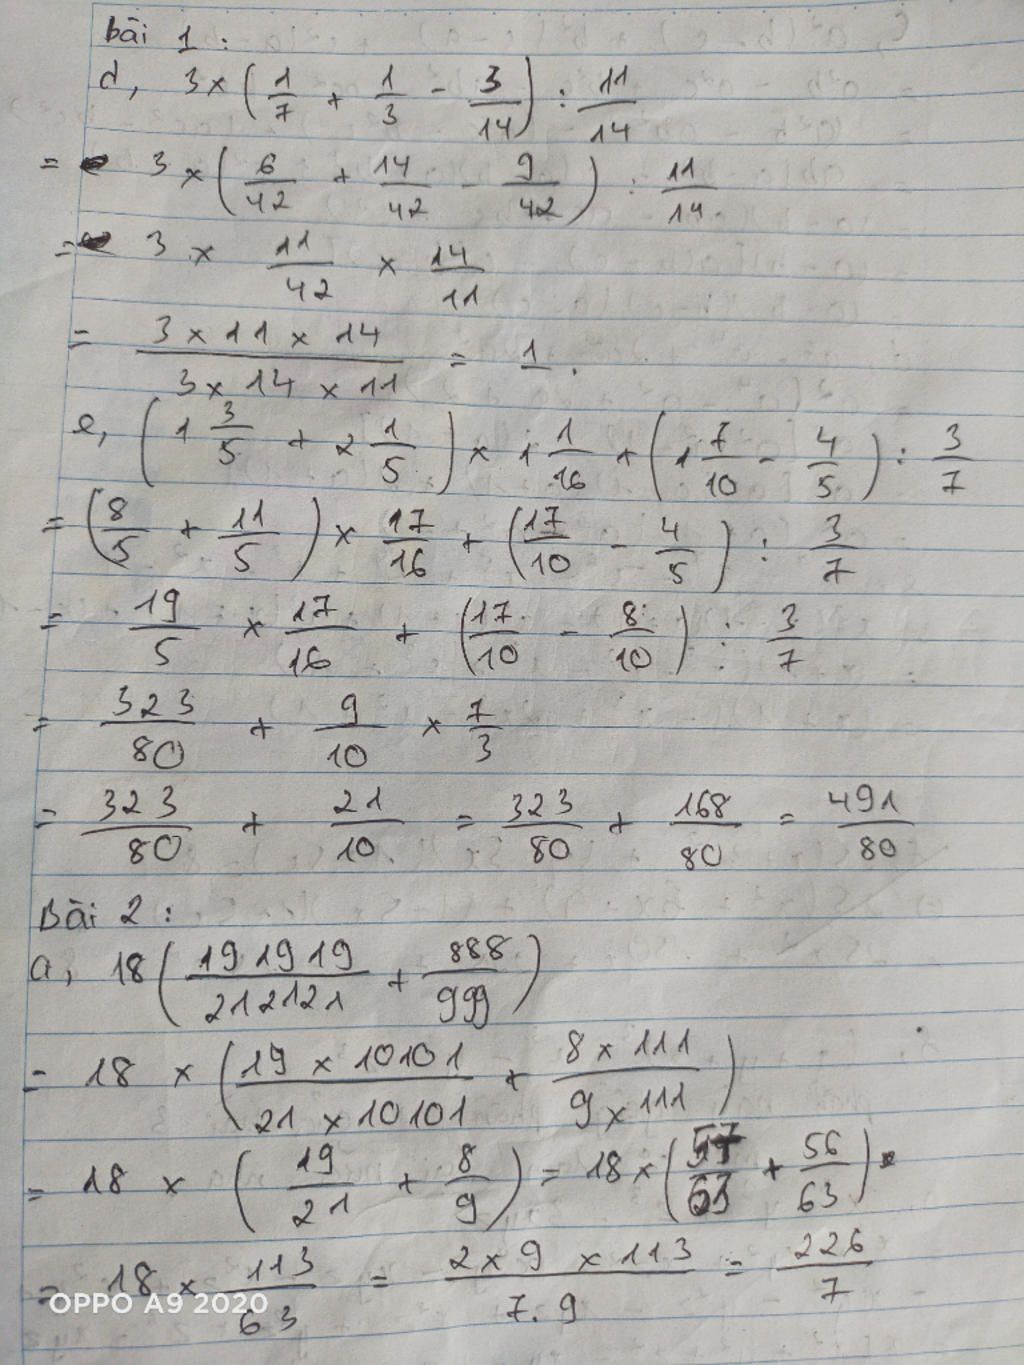 bài 1 :
d, 3 × ( 1/7 + 1/3 - 3/14 ) : 11/14
= 3 × ( 6/42 + 14/42 - 9/42 ) : 11/14
= 3 × 11/42 × 14/11
= 3 × 11 × 14 / 3 × 14 × 11 = 1 .
e, ( 1 3/5 + 2 1/5 ) × 1 1/16 + ( 1 7/10 - 4/5 ) : 3/7
= ( 8/5 + 11/5 ) × 17/16 + ( 17/10 - 4/5 ) : 3/7
= 19/5 × 17/16 + ( 17/10 - 8/10 ) : 3/7
= 323/80 + 9/10 × 7/3
= 323/80 + 21/10 = 323/80 + 168/80 = 491/80
Bài 2 :
a, 18 ( 19 19 19 / 212121 + 888/999 )
= 18 × ( 19 × 10101 / 21 × 10101 + 8 × 111 / 9 × 111 )
= 18 × ( 19/21 + 8/9 ) = 18 × ( 57/63 + 56/63 )
= 18 × 113/63 = 2 × 9 × 113 / 7 . 9 = 226/7
OPPO A9 2020